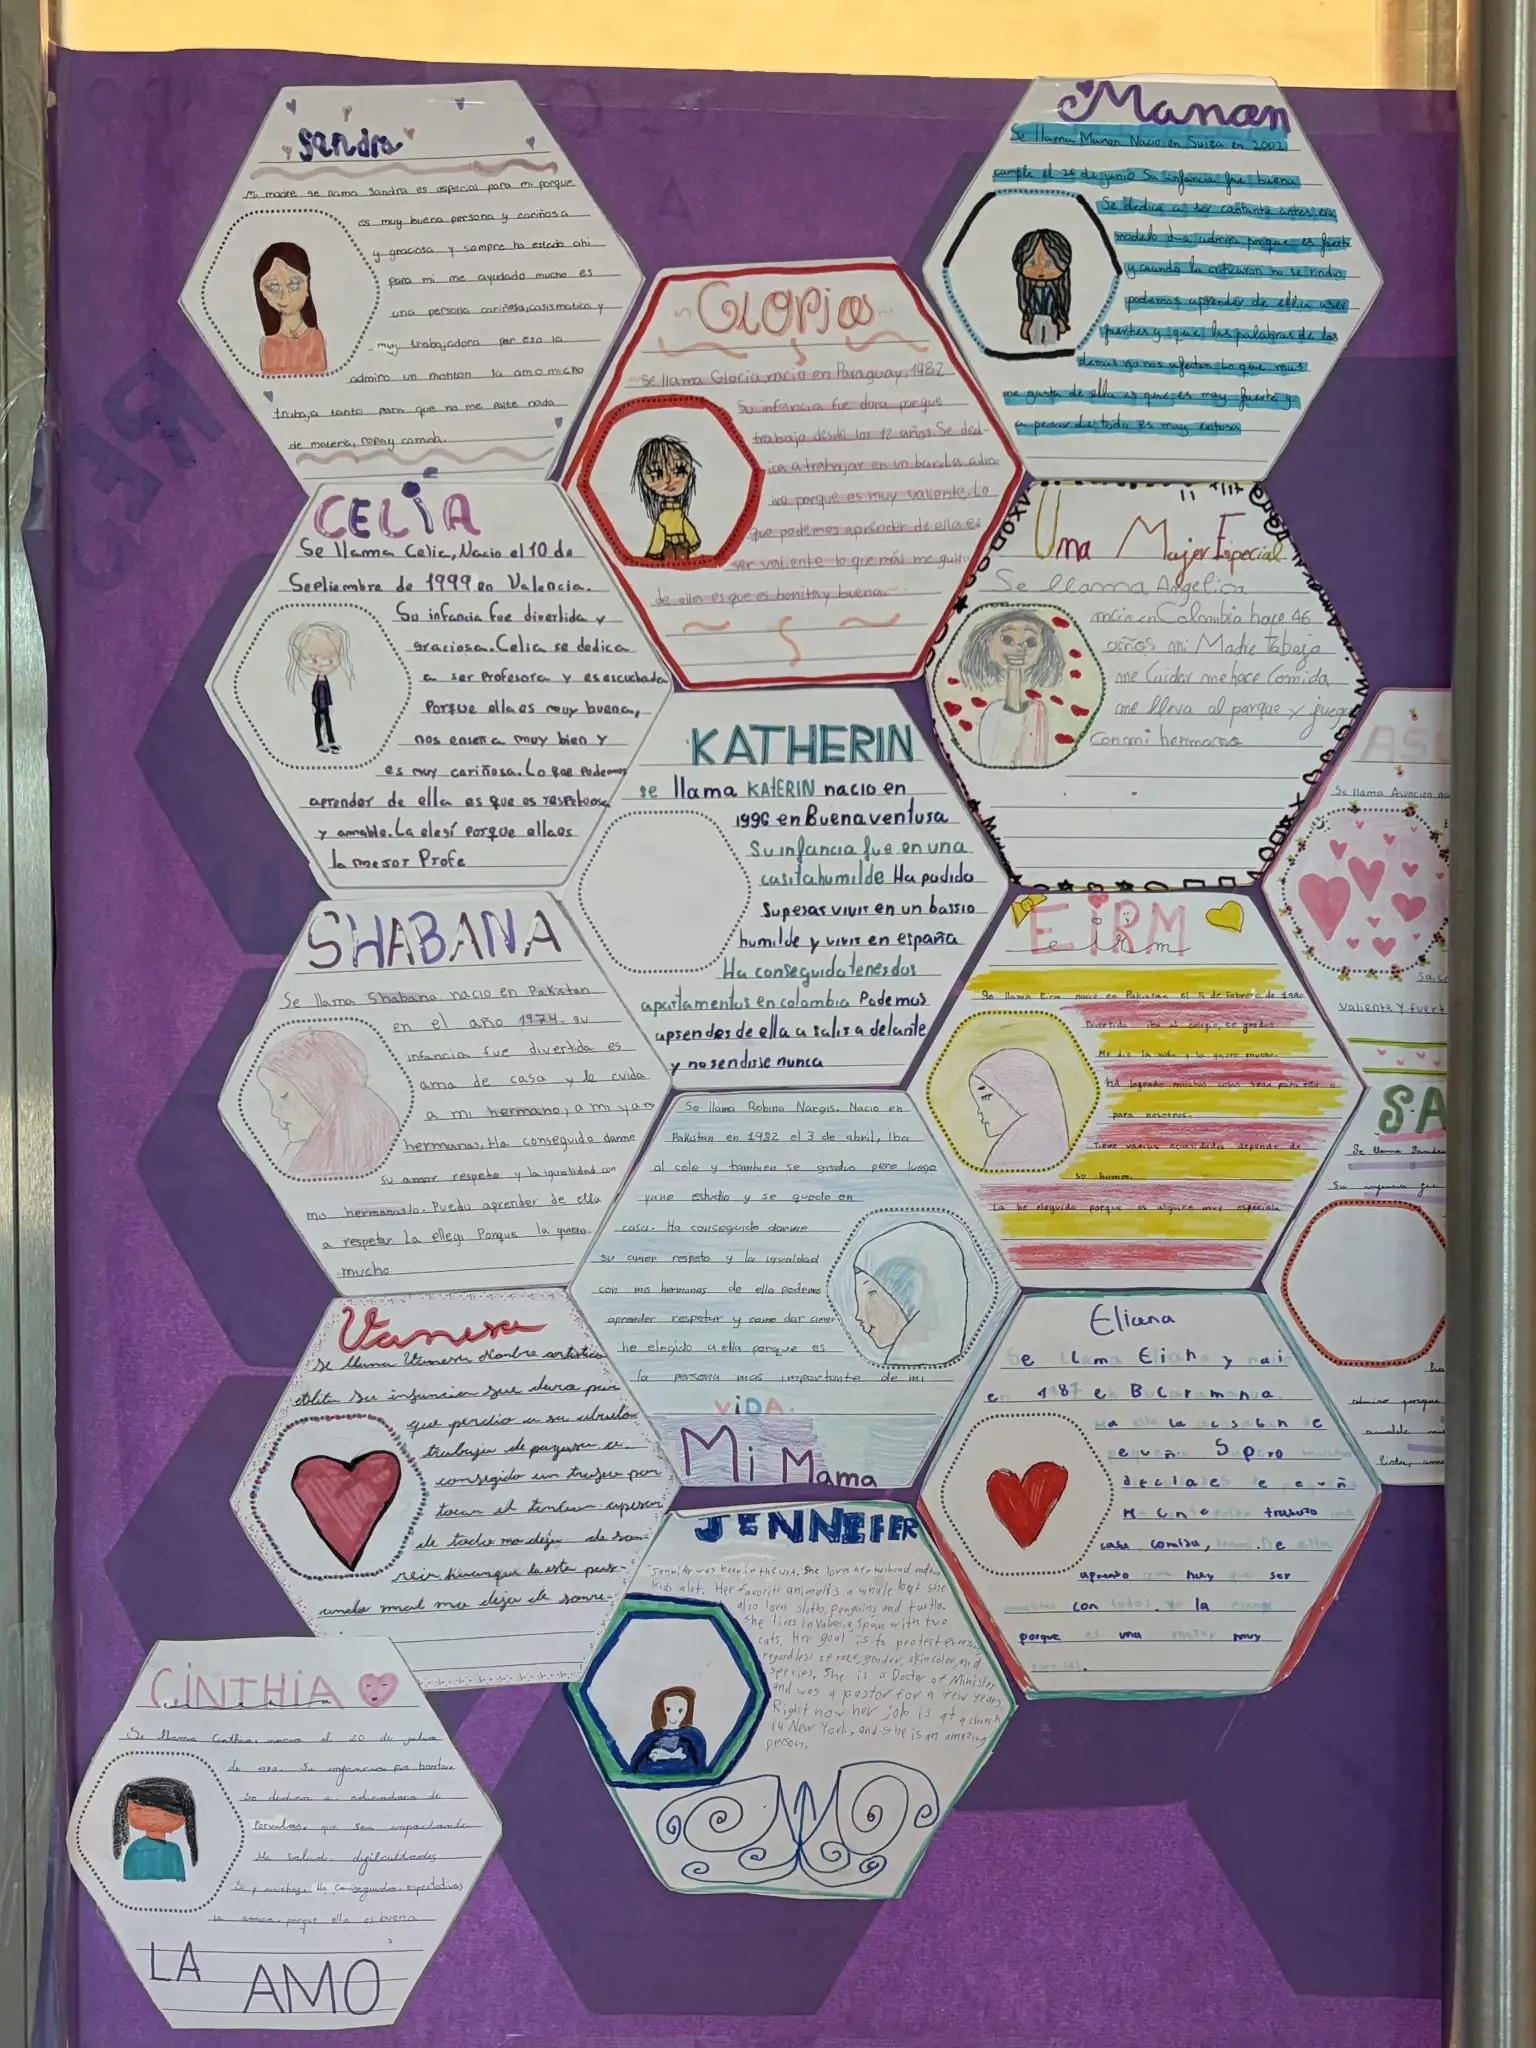 Sandra
Mi madre se llama Sandra es especial para mi porque
es muy buena persona y cariñosa
y graciosa y siempre ha estado ahi
para mi me ayudado mucho es
una persona cariñosa, casismatica y
muy trabajadora por eso la
admiro un monton la amo mucho
trabaja tanto para que no me falte nada
de materia, ropa y comida.
Manon
Se llama Manon Nacio en Suiza en 2002
cumple el 26 de junio Su infancia fue buena
Se dedica a ser cantante antes era
modelo La admiro porque es fuerte
y cuando la criticaron no se rindio
podemos aprender de ella a ser
fuertes y que las palabras de los
demas no nos afecten Lo que mas
me gusta de ella es que es muy fuerte y
a pesar de todo es muy exitosa
GLORia
Se llama Gloria, nacio en Paraguay. 1982
Su infancia fue dura porque
trabajo desde los 12 años. Se ded-
ica a trabajar en un bar. La admi-
iro porque es muy valiente. Lo
que podemos aprender de ella es
ser valiente lo que más me gusta
de ella es que es bonita y buena.
CELIA
Se llama Celia, Nacio el 10 de
Septiembre de 1999 en Valencia.
Su infancia fue divertida y
graciosa. Celia se dedica
a ser Profesora y es escuchada
Porque ella es muy buena,
nos enseña muy bien y
es muy cariñosa. Lo que Podemos
aprender de ella es que es respetuosa
y amable. La elegí Porque ella es
la mejor Profe
Una Mujer Especial
Se llama Angelica
nacio en Colombia hace 46
años mi Madre Tabaja
me Cuidar me hace Comida
me lleva al parque y juega
Con mi hermanos
KATHERIN
se llama KATERIN nacio en
1996 en Buenaventusa
Su infancia fue en una
casita humilde Ha podido
supesas vivis en un bassio
humilde y vivis en españa
Ha conseguido tenes dos
apartamentos en colombia Podemos
apsendes de ella a salis a delante
y no sendisse nunca
AS
Se llama Asuncion na
valiente Y fuert
SHABANA
Se llama Shabana nacio en Pakistan
en el año 1974. su
infancia fue divertida es
ama de casa y le cuida
a mi hermano, a mi y a mi
hermanas. Ha conseguido darme
su amor respeto y la igualidad con
mis hermanaslo. Puedo aprender de ella
a respetar La ellegi Porque la quiero
mucho
EiRM
eirm
Se llama Eirm nacio en Pakistan el 5 de Febrero de 1990
Divertida iba al colegio, se graduo
Me dio la vida y la quiero mucho.
Ha logrado muchas cosas sean para ella o
para nosotros.
Tiene varias cualidades depende de
su humor.
La he eleguido porque es alguien muy especial
SA
Se llama Sandra
Su infancia fue
admiro porque
amable
linda,
Se llama Robina Nargis. Nacio en
Pakistan en 1982 el 3 de abril, Iba
al cole y tambien se graduo pero luego
yano estudio y se quedo en
casa. Ha conseguido darme
su amor respeto y la igualdad
con mis hermanas de ella podemos
aprender respetar y como dar amor
he elegido a ella porque es
la persona mas importante de mi
ViDA.
Mi Mama
Vanesa
Se llama Vanesa Nombre artistico
su infancia fue dura por
que perdio a su abuelo
trabaja de payasa a
consegido un trofeo por
tocar el tambor apesar
de todo no deja de son-
reir haunque la este pas-
ando mal no deja de sonre-
Eliana
Se llama Eliana y naci
en 1987 en Bucaramanga
Ha ella la acosaban de
pequeña Supero
trabajo
casa comida, De ella
aprendo que hay que ser
amable con todos. Yo la
porque es una mujer muy
especial.
JENNIFER
Jennifer was born in the USA. She loves her husband and two
kids alot. Her favorite animal is a whale but she
also loves sloths, penguins and turtles.
She lives in Valencia, Spain with two
cats. Her goal is to protect everyone
regardless of race, gender, skin color, and
species. She is a Doctor of Minister
and was a pastor for a few years.
Right now her job is at a church
in New York, and she is an amazing
person.
CiNTHIA
Se llama Cinthia, nacio el 20 de julio
de Su infancia fue
Se dedica a educadora de
Parvulos. que sea impactante
Su salud. dificultades
Si y muchas. Ha conseguido. espectativas
la porque ella es buena
LA AMO